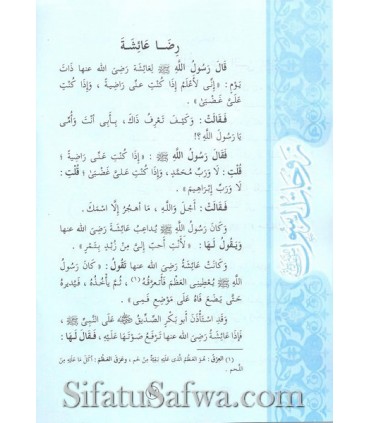 رِضَا عَائِشَةَ
قَالَ رَسُولُ اللَّهِ ﷺ لِعَائِشَةَ رَضِيَ الله عنها ذَاتَ
يَوْمٍ : « إِنِّي لَأَعْلَمُ إِذَا كُنْتِ عَنِّي رَاضِيةً ، وَإِذَا كُنْتِ
عَلَيَّ غَضْبَىٰ » .
فَقَالَتْ : وَكَيْفَ تَعْرِفُ ذَاكَ ، بِأَبِي أَنْتَ وَأُمِّي
يَا رَسُولَ اللَّهِ ؟!
فَقَالَ رَسُولُ اللَّهِ ﷺ : « إِذَا كُنْتِ عَنِّي رَاضِيةً ؛
قُلْتِ : لَا وَرَبِّ مُحَمَّدٍ ، وَإِذَا كُنْتِ عَلَيَّ غَضْبَىٰ ؛ قُلْتِ :
لَا وَرَبِّ إِبْرَاهِيمَ » .
فَقَالَتْ : أَجَلْ وَاللَّهِ ، مَا أَهْجُرُ إِلَّا اسْمَكَ .
وَكَانَ رَسُولُ اللَّهِ ﷺ يُدَاعِبُ عَائِشَةَ رَضِيَ الله عنها
وَيَقُولُ لَهَا : « لَأَنْتِ أَحَبُّ إِلَيَّ مِنْ زُبْدٍ بِتَمْرٍ » .
وَكَانَتْ عَائِشَةُ رَضِيَ الله عنها تَقُولُ : « كَانَ رَسُولُ
اللَّهِ ﷺ يُعْطِينِي العَظْمَ فَأَتَعَرَّقُهُ (١) ، ثُمَّ يَأْخُذُهُ ، فَيُدِيرهُ
حَتَّى يَضَعَ فَاهُ عَلَى مَوْضِعِ فَمِي » .
وَقَدِ اسْتَأْذَنَ أَبو بَكْرٍ الصِّدِّيقُ ﵁ عَلَى النَّبِيِّ ﷺ ،
فَإِذَا عَائِشَةُ رَضِيَ الله عنها تَرْفَعُ صَوْتَهَا عَلَيْهِ ، فَقَالَ لَهَا :
(١) العِرْقُ : هُوَ العَظْمُ الَّذِي عَلَيْهِ بَقِيَّةٌ مِنْ لَحْمٍ ، وَعَرَقَ العَظْمَ : أَكَلَ مَا عَلَيْهِ مِنَ
اللَّحْمِ .
زوجات الرسول
SifatuSafwa.com